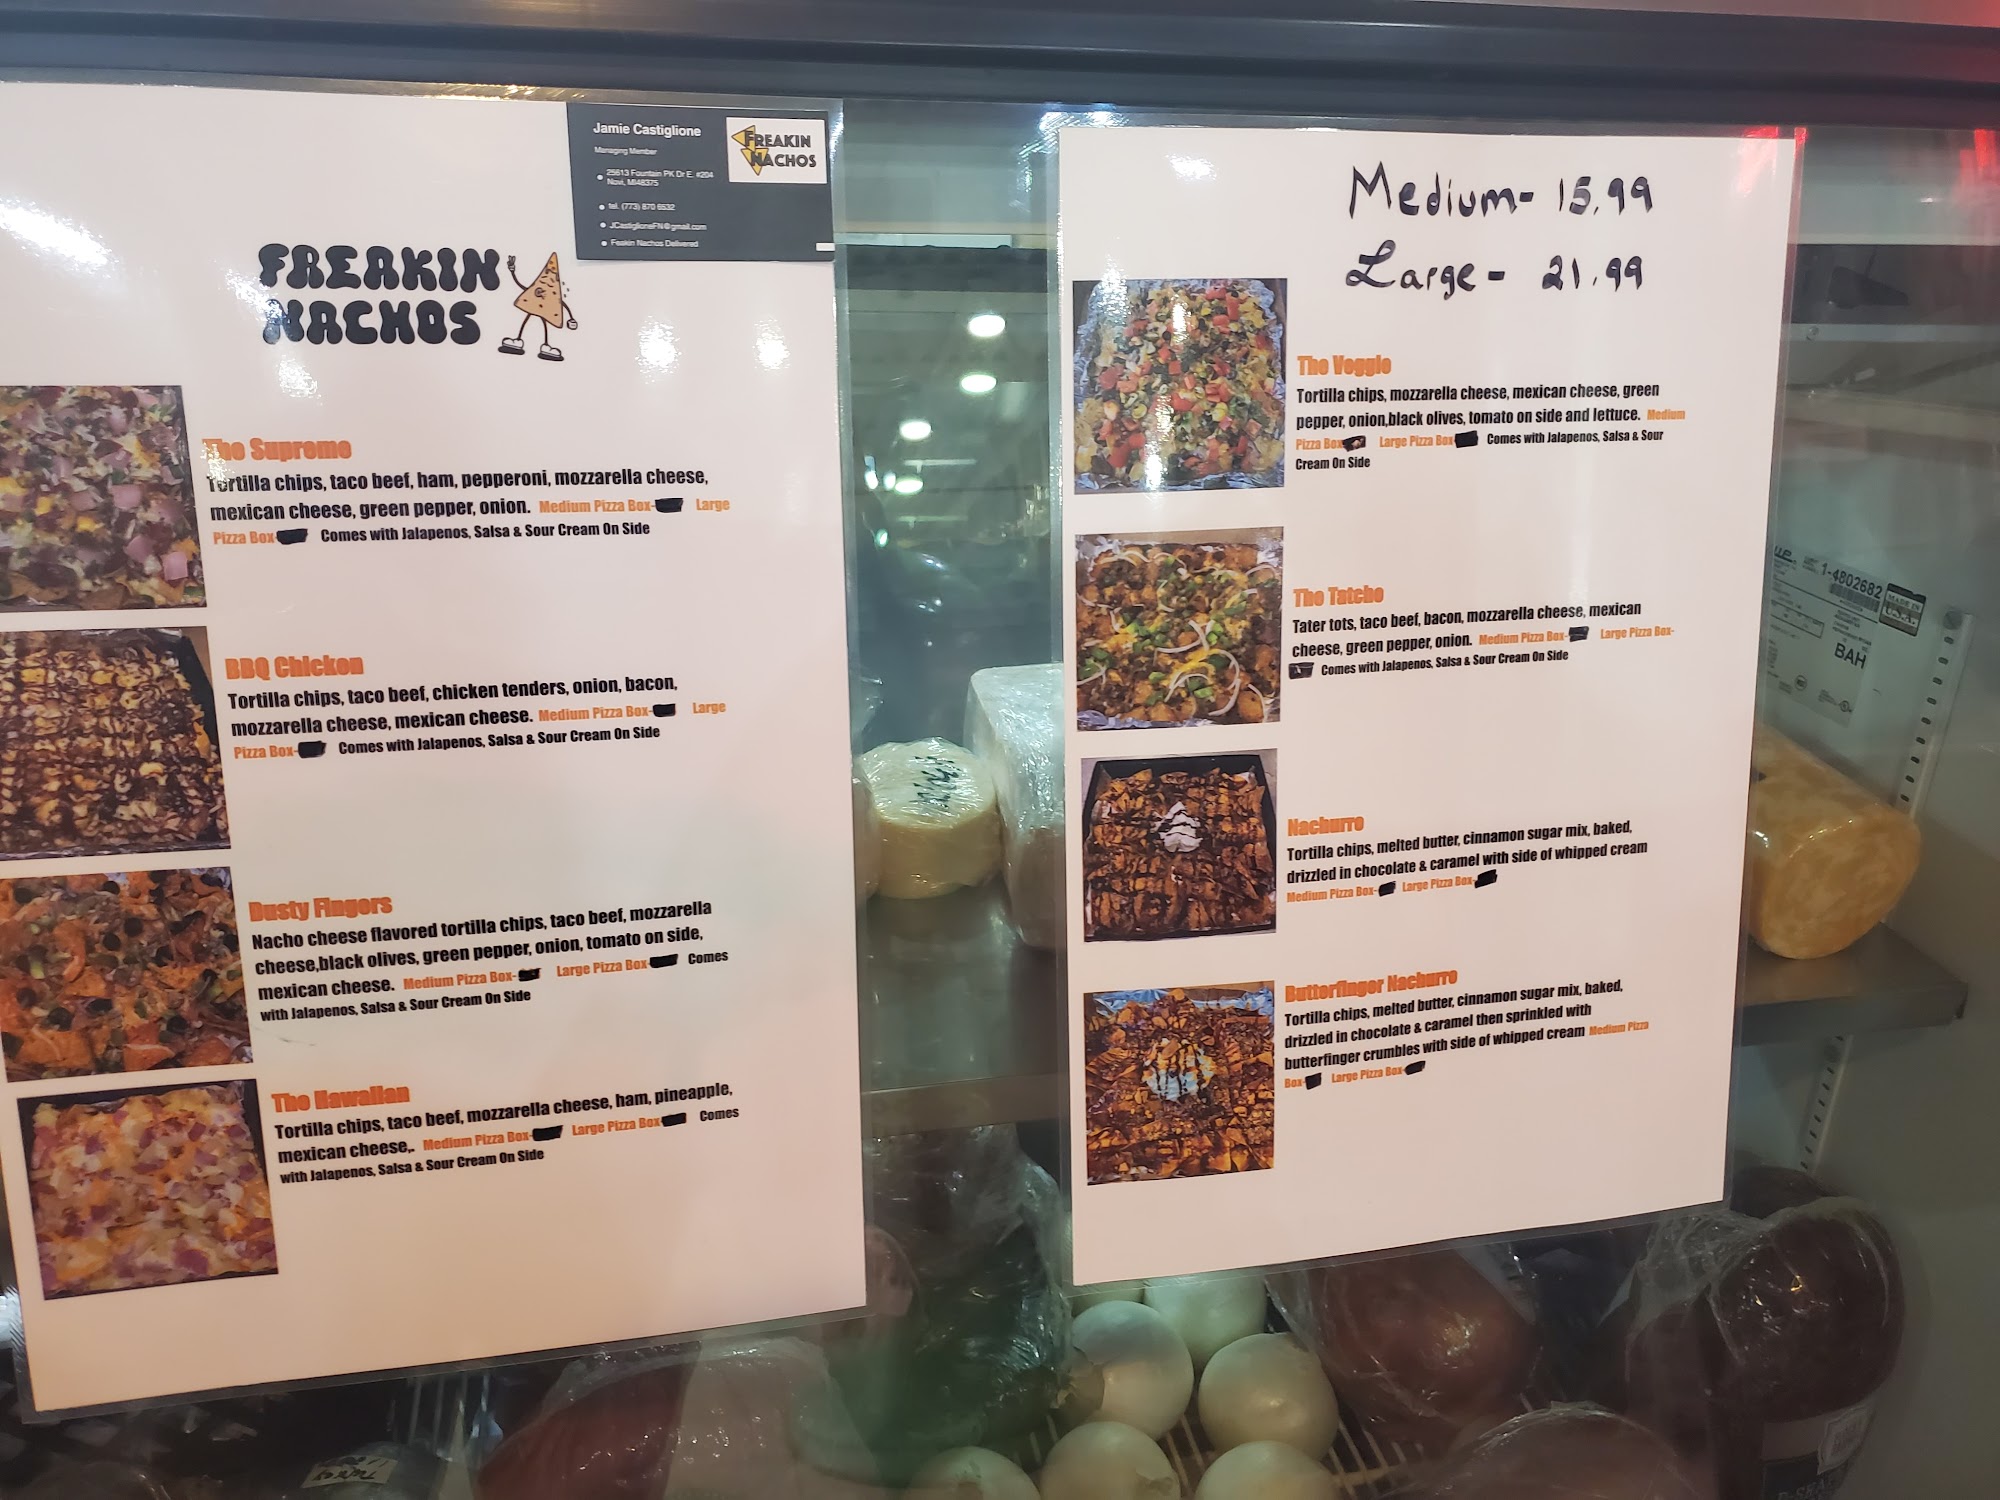 Jamie Castiglione
Managing Member
25613 Fountain PK Dr E. #204
Novi, MI48375
tel. (773) 870 6532
JCastiglioneFN@gmail.com
Feakin Nachos Delivered
FREAKIN
NACHOS
FREAKIN
NACHOS
The Supreme
Tortilla chips, taco beef, ham, pepperoni, mozzarella cheese,
mexican cheese, green pepper, onion. Medium Pizza Box- Large
Pizza Box- Comes with Jalapenos, Salsa & Sour Cream On Side
BBQ Chicken
Tortilla chips, taco beef, chicken tenders, onion, bacon,
mozzarella cheese, mexican cheese. Medium Pizza Box- Large
Pizza Box- Comes with Jalapenos, Salsa & Sour Cream On Side
Dusty Fingers
Nacho cheese flavored tortilla chips, taco beef, mozzarella
cheese,black olives, green pepper, onion, tomato on side,
mexican cheese. Medium Pizza Box- Large Pizza Box- Comes
with Jalapenos, Salsa & Sour Cream On Side
The Hawaiian
Tortilla chips, taco beef, mozzarella cheese, ham, pineapple,
mexican cheese,. Medium Pizza Box- Large Pizza Box- Comes
with Jalapenos, Salsa & Sour Cream On Side
Medium- 15.99
Large- 21.99
The Veggie
Tortilla chips, mozzarella cheese, mexican cheese, green
pepper, onion,black olives, tomato on side and lettuce. Medium
Pizza Box- Large Pizza Box- Comes with Jalapenos, Salsa & Sour
Cream On Side
The Tatcho
Tater tots, taco beef, bacon, mozzarella cheese, mexican
cheese, green pepper, onion. Medium Pizza Box- Large Pizza Box-
Comes with Jalapenos, Salsa & Sour Cream On Side
Nachurro
Tortilla chips, melted butter, cinnamon sugar mix, baked,
drizzled in chocolate & caramel with side of whipped cream
Medium Pizza Box- Large Pizza Box-
Butterfinger Nachurro
Tortilla chips, melted butter, cinnamon sugar mix, baked,
drizzled in chocolate & caramel then sprinkled with
butterfinger crumbles with side of whipped cream Medium Pizza
Box- Large Pizza Box-
1-4802682
MADE IN
U.S.A.
BAH
Turkey